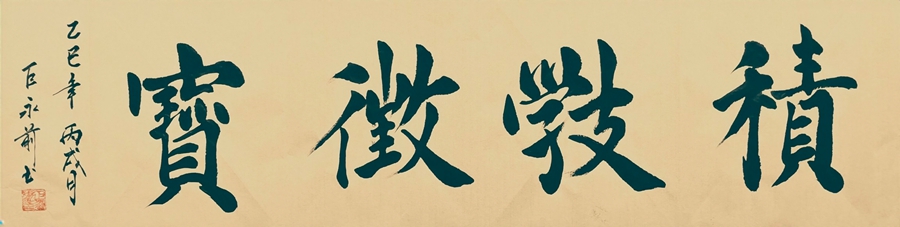 積斅徵寶
乙巳年 丙戌月
巨永前书